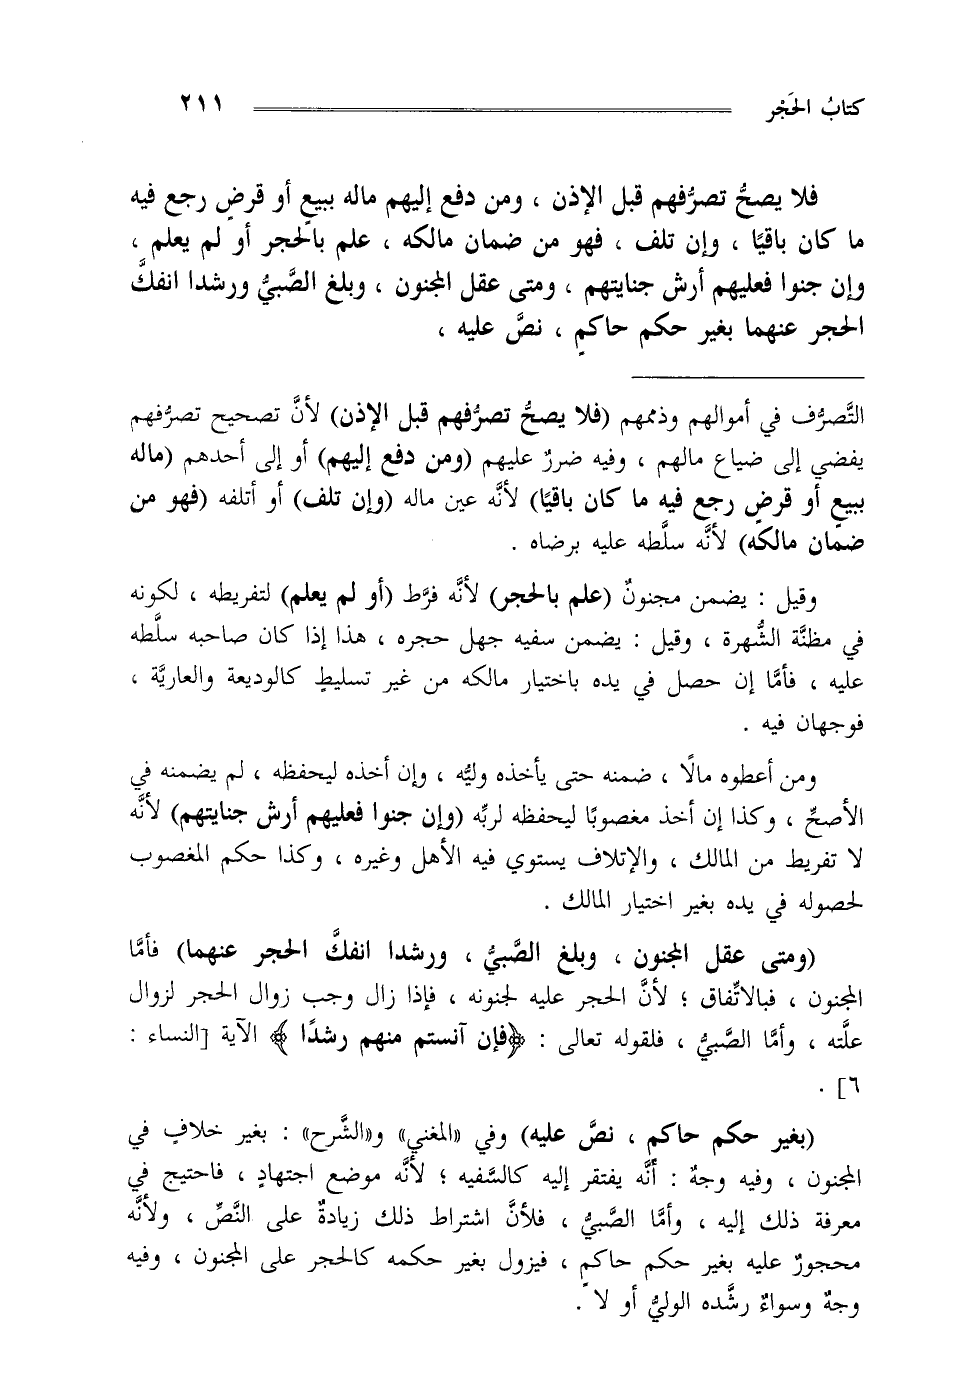 كتابُ الحَجْر ٢١١
فلا يصحُّ تصرُّفهم قبل الإذن ، ومن دفع إليهم ماله ببيعٍ أو قرضٍ رجع فيه
ما كان باقيًا ، وإن تلف ، فهو من ضمان مالكه ، علم بالحجر أو لم يعلم ،
وإن جنوا فعليهم أرش جنايتهم ، ومتى عقل المجنون ، وبلغ الصَّبيُّ ورشدا انفكَّ
الحجر عنهما بغير حكم حاكمٍ ، نصَّ عليه ،
التَّصرُّف في أموالهم وذممهم (فلا يصحُّ تصرُّفهم قبل الإذن) لأنَّ تصحيح تصرُّفهم
يفضي إلى ضياع مالهم ، وفيه ضررٌ عليهم (ومن دفع إليهم) أو إلى أحدهم (ماله
ببيعٍ أو قرضٍ رجع فيه ما كان باقيًا) لأنَّه عين ماله (وإن تلف) أو أتلفه (فهو من
ضمان مالكه) لأنَّه سلَّطه عليه برضاه .
وقيل : يضمن مجنونٌ (علم بالحجر) لأنَّه فرَّط (أو لم يعلم) لتفريطه ، لكونه
في مظنَّة الشُّهرة ، وقيل : يضمن سفيه جهل حجره ، هذا إذا كان صاحبه سلَّطه
عليه ، فأمَّا إن حصل في يده باختيار مالكه من غير تسليطٍ كالوديعة والعاريَّة ،
فوجهان فيه .
ومن أعطوه مالًا ، ضمنه حتى يأخذه وليُّه ، وإن أخذه ليحفظه ، لم يضمنه في
الأصحِّ ، وكذا إن أخذ مغصوبًا ليحفظه لربِّه (وإن جنوا فعليهم أرش جنايتهم) لأنَّه
لا تفريط من المالك ، والإتلاف يستوي فيه الأهل وغيره ، وكذا حكم المغصوب
لحصوله في يده بغير اختيار المالك .
(ومتى عقل المجنون ، وبلغ الصَّبيُّ ، ورشدا انفكَّ الحجر عنهما) فأمَّا
المجنون ، فبالاتِّفاق ؛ لأنَّ الحجر عليه لجنونه ، فإذا زال وجب زوال الحجر لزوال
علَّته ، وأمَّا الصَّبيُّ ، فلقوله تعالى : ﴿فإن آنستم منهم رشدًا ﴾ الآية [النساء :
٦] .
(بغير حكم حاكم ، نصَّ عليه) وفي «المغني» و«الشَّرح» : بغير خلافٍ في
المجنون ، وفيه وجهٌ : أنَّه يفتقر إليه كالسَّفيه ؛ لأنَّه موضع اجتهادٍ ، فاحتيج في
معرفة ذلك إليه ، وأمَّا الصَّبيُّ ، فلأنَّ اشتراط ذلك زيادةٌ على النَّصِّ ، ولأنَّه
محجورٌ عليه بغير حكم حاكمٍ ، فيزول بغير حكمه كالحجر على المجنون ، وفيه
وجهٌ وسواءٌ رشَّده الوليُّ أو لا .